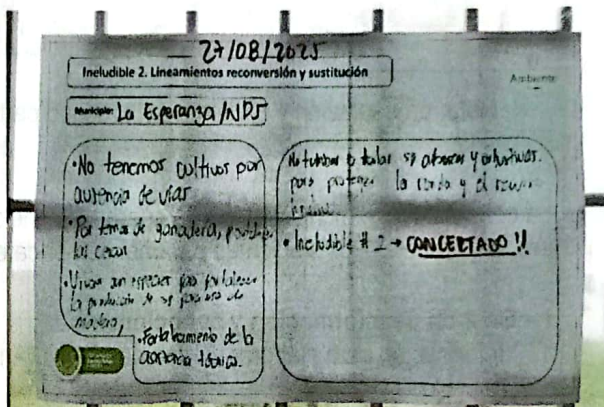 27/08/2025
Ineludible 2. Lineamientos reconversión y sustitución
Ambiente
Municipio: La Esperanza/NDS
• No tenemos cultivos por
ausencia de vías
• Por temas de ganadería,
las cercas
• Vivero con especies para fortalecer
la producción de sp para uso de
madera,
• Fortalecimiento de la
asistencia técnica.
No tumbar o talar sp y
para proteger la ronda y el recurso
• Ineludible # 2 → CONCERTADO !!